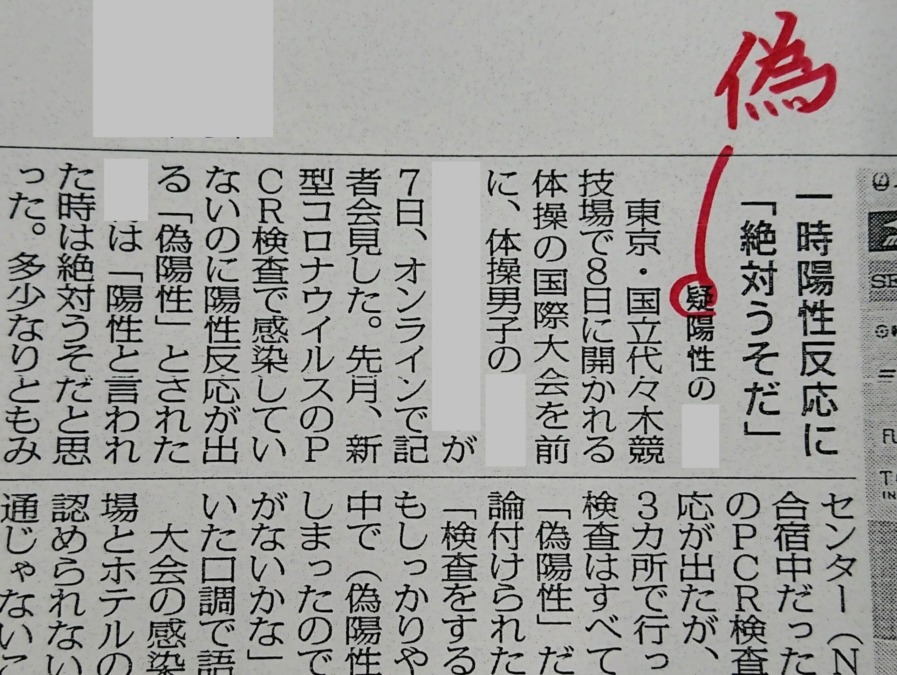 偽
一時陽性反応に
「絶対うそだ」
疑陽性の
東京・国立代々木競
技場で8日に開かれる
体操の国際大会を前
に、体操男子の
が
7日、オンラインで記
者会見した。先月、新
型コロナウイルスのP
CR検査で感染してい
ないのに陽性反応が出
る「偽陽性」とされた
は「陽性と言われ
た時は絶対うそだと思
った。多少なりともみ
センター(N
合宿中だった
のPCR検査
応が出たが、
3カ所で行っ
検査はすべて
「偽陽性」だ
論付けられた
「検査をする
もしっかりや
中で(偽陽性
しまったので
がないかな」
いた口調で語
大会の感染
場とホテルの
認められない
通じゃないこ